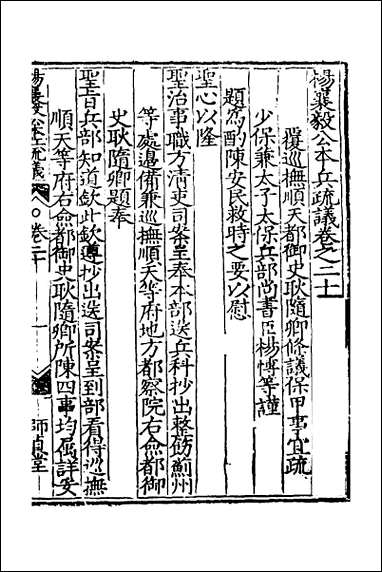 楊襄毅公本兵疏議卷之二十
覆巡撫順天都御史耿隨卿條議保甲事宜疏
少保兼太子太保兵部尚書臣楊博等謹
題為酌陳安民救時之要以慰
聖心以隆
聖治事職方清吏司案呈奉本部送兵科抄出整飭薊州
等處邊備兼巡撫順天等府地方都察院右僉都御
史耿隨卿題奉
聖旨兵部知道欽此欽遵抄出送司案呈到部看得巡撫
順天等府右僉都御史耿隨卿所陳四事均屬詳妥
楊襄毅公本兵疏議 卷二十 一 師貞堂